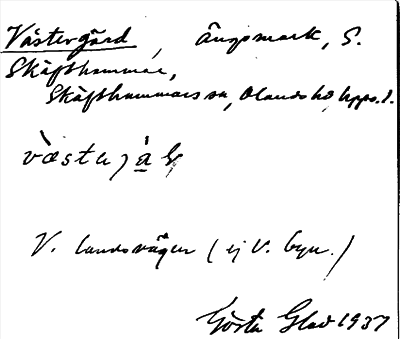 Västergärd, Ängsmark, S.
Skäfthammar,
Skäfthammars sn, Olands hd, Upps. l.
V. landsvägen (ej V. byn.)
Gösta Glad 1937